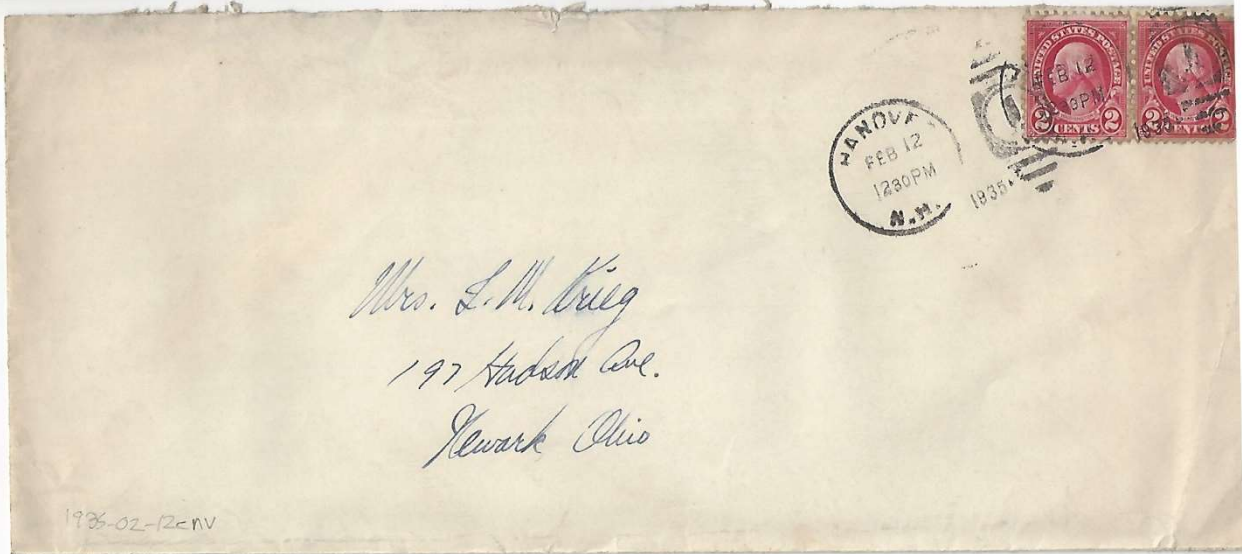 UNITED STATES POSTAGE UNITED STATES POSTAGE
FEB 12
30PM
2 CENTS 2 2 CENTS 2
1935
HANOVE
FEB 12
1230PM
N.H.
1935
Mrs. L. M. Krieg
197 Hudson Ave.
Newark Ohio
1935-02-12env